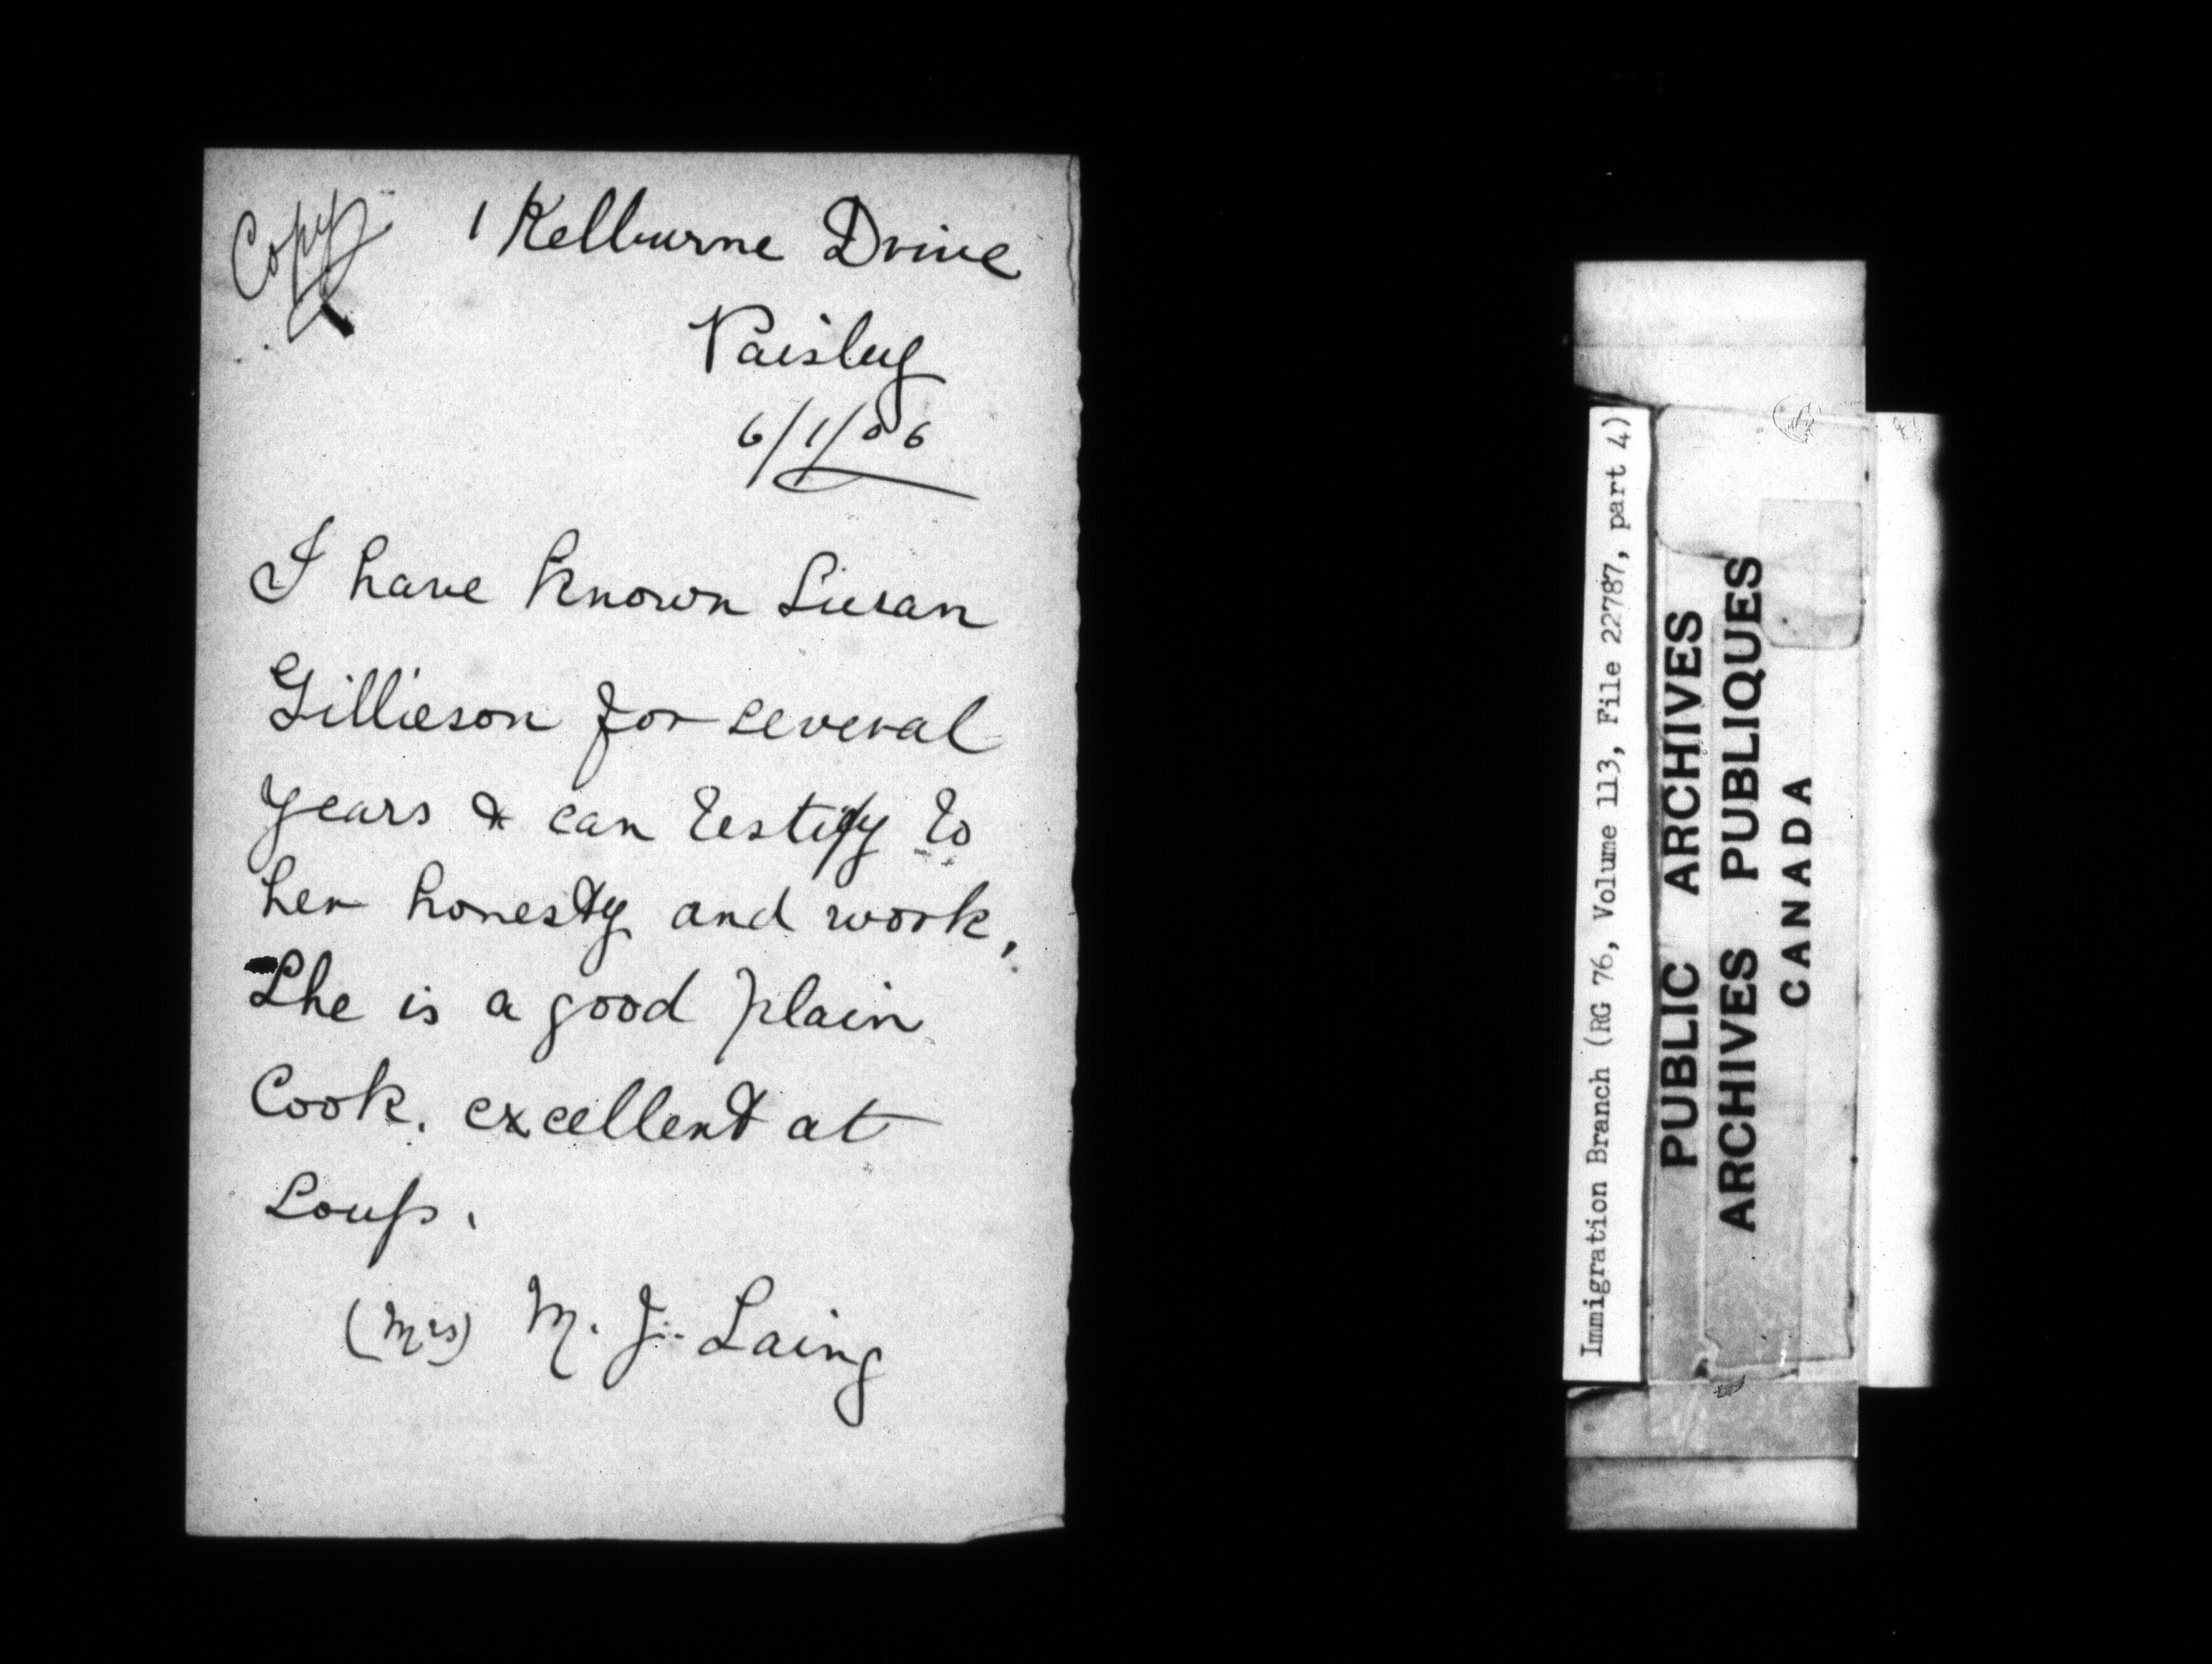 Copy
1 Kelburne Drive
Paisley
6/1/06
I have known Susan
Gillieson for several
years & can testify to
her honesty and work,
She is a good plain
Cook. excellent at
Soups.
(Mrs) M. J. Laing
Immigration Branch (RG 76, Volume 113, File 22787, part 4)
PUBLIC ARCHIVES
ARCHIVES PUBLIQUES
CANADA